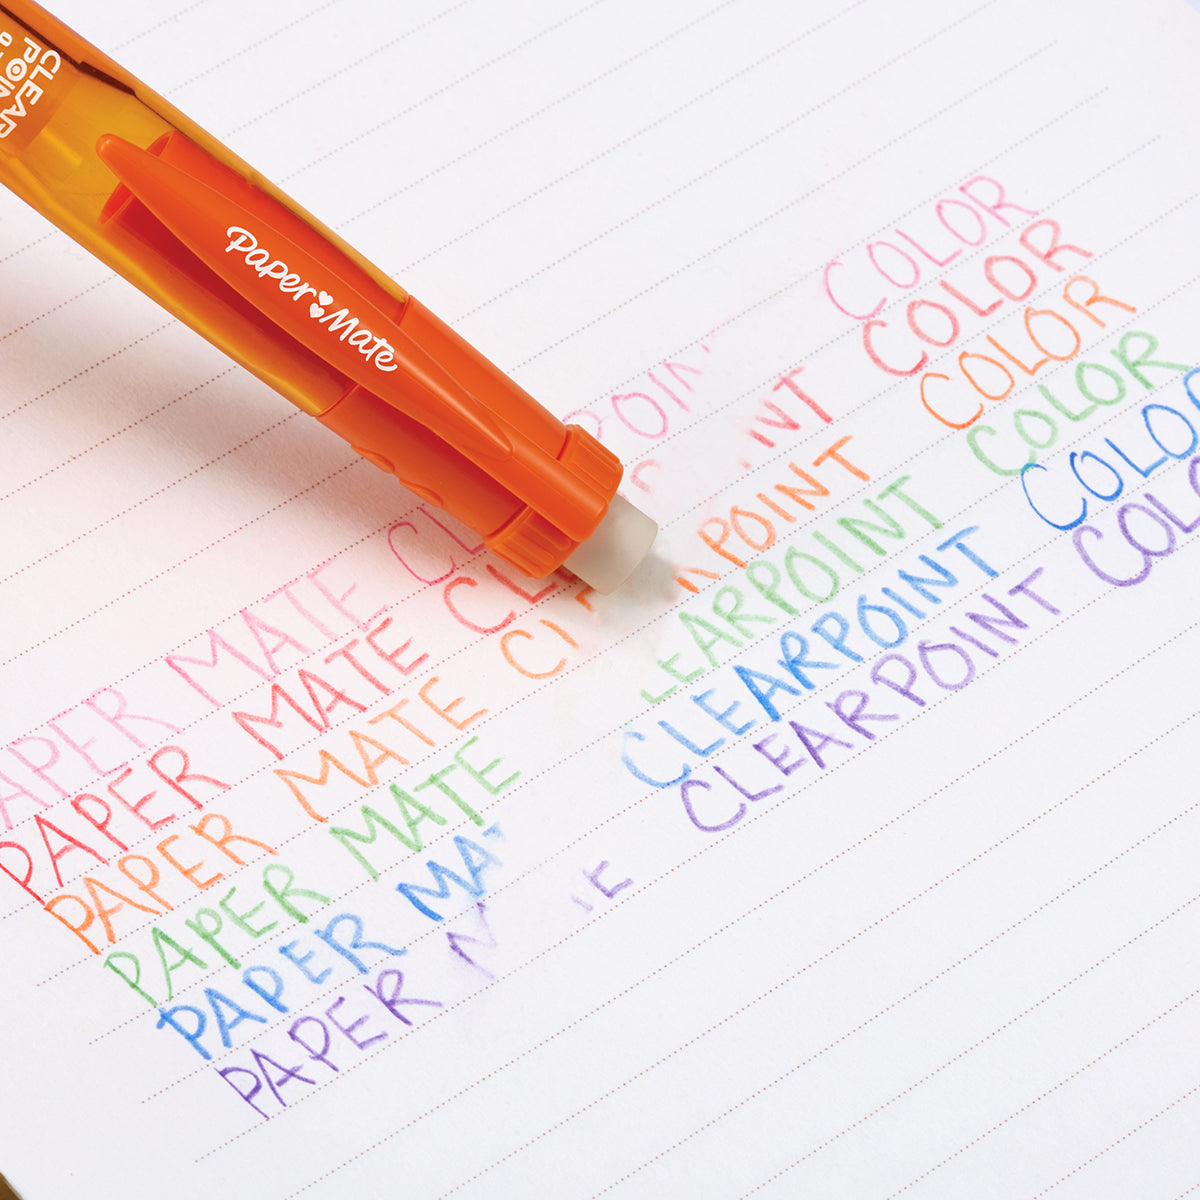 CLEAR
POIN
Paper Mate
APER MATE CL POIN COLOR
PAPER MATE CLE NT COLOR
PAPER MATE CL POINT COLOR
PAPER MATE LEARPOINT COLOR
PAPER MAT CLEARPOINT COLO
PAPER M E CLEARPOINT COLO